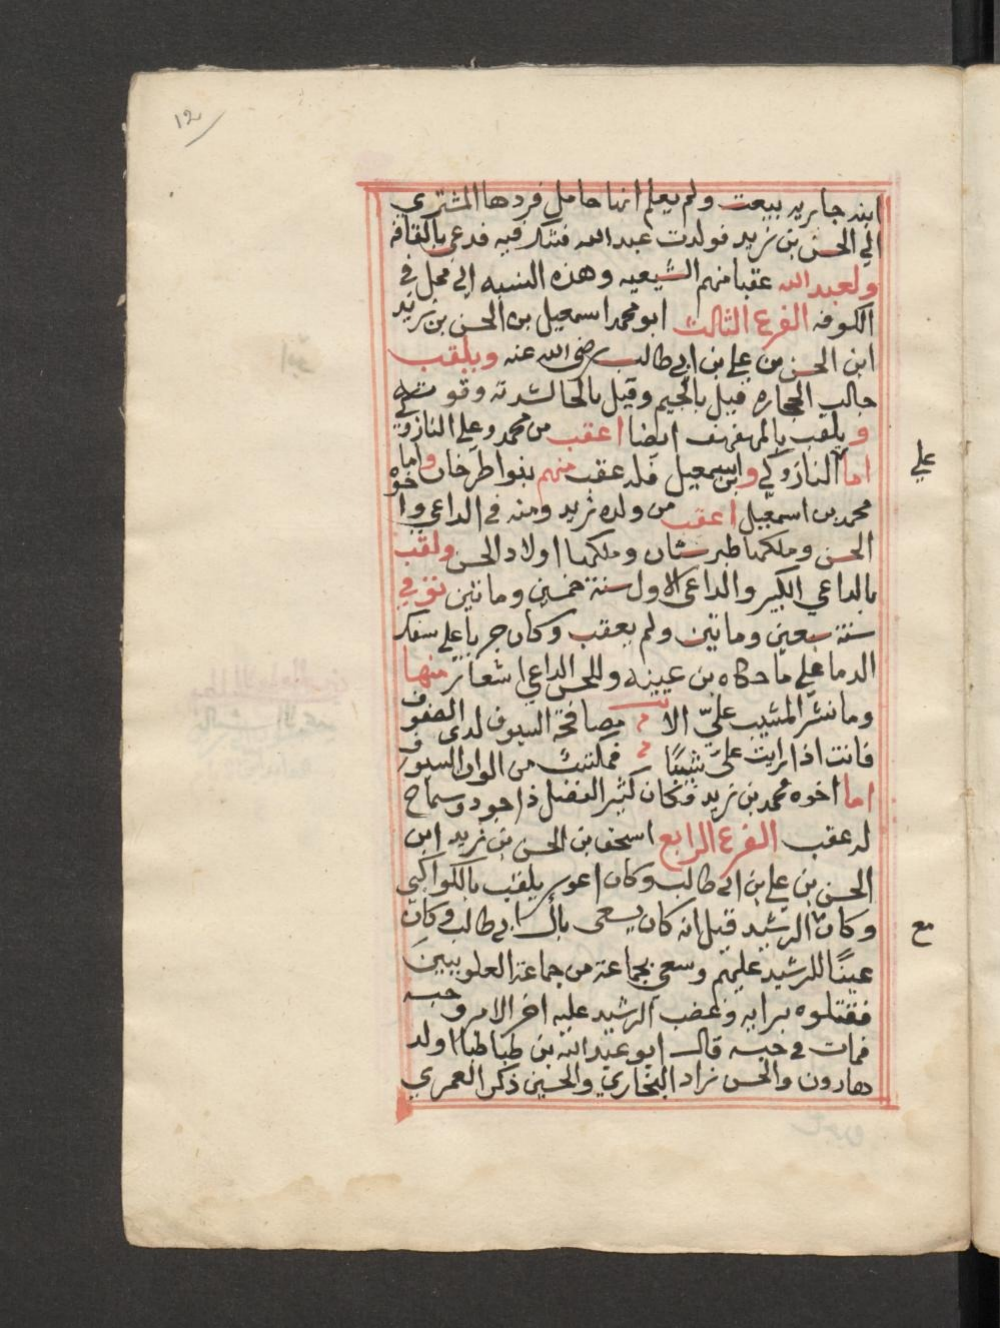 12
ابنه جاريه بيعت ولم يعلم انها حامل فردها المشتري
الي الحسن بن زيد فولدت عبد الله فشك فيه فدعي بالقافه
ولعبد الله عقبا منهم الشيعيه وهذه النسبه الي محل في
الكوفه الفرع الثالث ابو محمد اسمعيل بن الحسن بن زيد
ابن الحسن بن علي بن ابي طالب رضي الله عنه ويلقب
جالب الحجاره قيل بالجيم وقيل بالحا لشدته وقوته
ويلقب بالمهفهف ايضا اعقب من محمد وعلي النازوكي
اما النازوكي وابن اسمعيل فله عقب منهم بنواطرخان واما
محمد بن اسمعيل اعقب من ولده زيد ومنه في الداعي واخوه
الحسن وملكهما طبرستان وملكهما اولاد الحسن ولقب
بالداعي الكبير والداعي الاول سنة خمسين ومأتين توفي
سنة سبعين ومأتين ولم يعقب وكان جريا علي سفك
الدما علي ما حكاه بن عيينه وللحسن الداعي اشعار منها
وما نشر المشيب عليّ الا مصافحة السيوف لدي الصفوف
فانت اذا رايت عليّ شيبًا فمكتسب من الوان السيوف
اما اخوه محمد بن زيد وكان كثير الفضل ذا جود وسماح
له عقب الفرع الرابع اسحق بن الحسن بن زيد ابن
الحسن بن علي بن ابي طالب وكان اعور يلقب بالكواكبي
وكان الرشيد قيل انه كان يسعي بال ابي طالب وكان
مع
عينًا للرشيد عليهم وسعي بجماعة من جماعة العلويينَ
فقتلوه برايه وغضب الرشيد عليه اخر الامر وحبسه
فمات في حبسه قال ابو عبد الله بن طباطبا اولد
هارون والحسن زاد البخاري والحسين ذكر العمري
علي